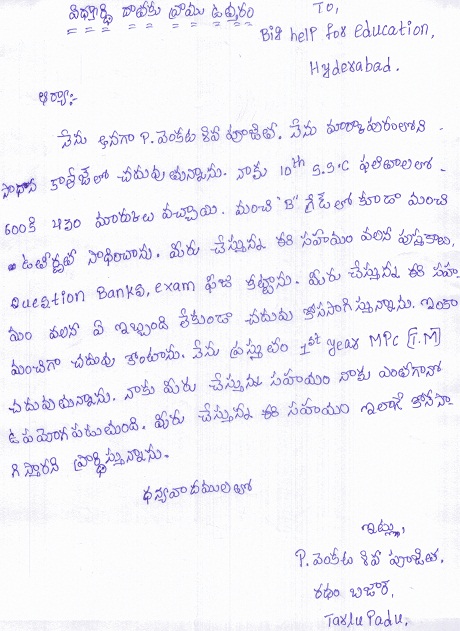 విద్యార్థి దాతకు వ్రాయు ఉత్తరం
To,
Big help for education,
Hyderabad.
ఆర్యా:-
నేను అనగా P. వెంకట శివ పూజిత. నేను మార్కాపురంలోని
సాధన కాలేజీలో చదువుతున్నాను. నాకు 10th S.S.C ఫలితాలలో
600కి 450 మారుకులు వచ్చాయి. మంచి "B" గ్రేడ్ లో కూడా మంచి
ఉత్తీర్ణత సాధించాను. మీరు చేస్తున్న ఈ సహాయం వలన పుస్తకాలు,
Question Banks, exam ఫీజు కట్టాను. మీరు చేస్తున్న ఈ సహా
యం వలన ఏ ఇబ్బంది లేకుండా చదువు కొనసాగిస్తున్నాను. ఇంకా
మంచిగా చదువు కొంటాను. నేను ప్రస్తుతం 1st year MPC [T.M]
చదువుతున్నాను. నాకు మీరు చేస్తున్న సహాయం నాకు ఎంతగానో
ఉపయోగపడుతుంది. మీరు చేస్తున్న ఈ సహాయం ఇలాగే కొనసా
గిస్తారని ప్రార్థిస్తున్నాను.
ధన్యవాదములతో
ఇట్లు,
P. వెంకట శివ పూజిత.
రథం బజార్,
Tarlu Padu.